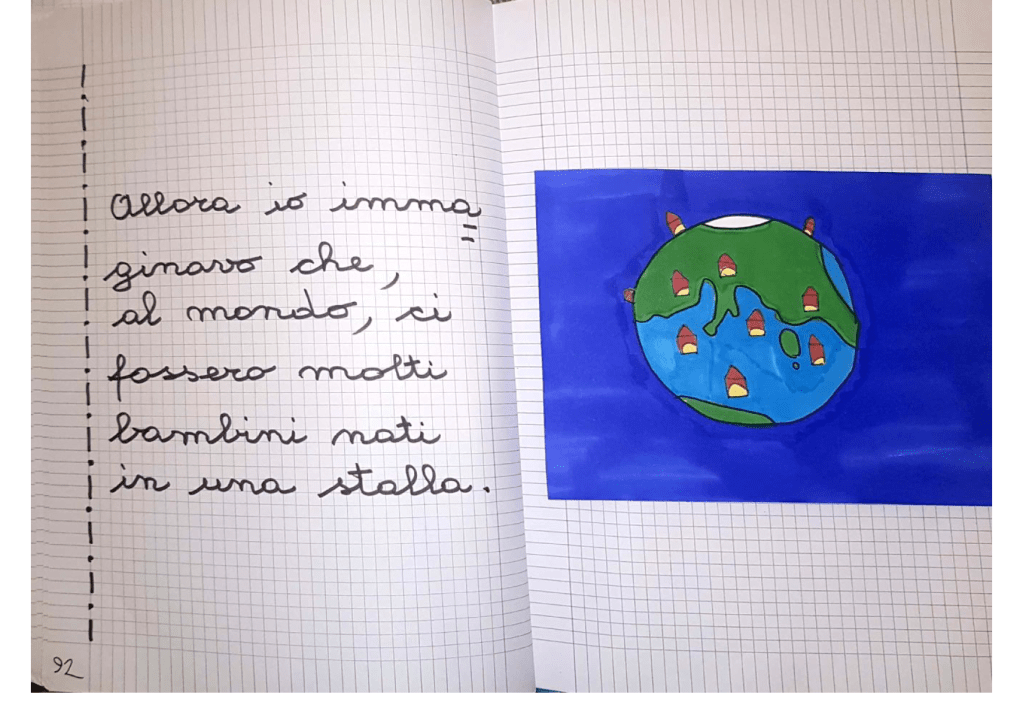 Allora io imma=
ginavo che,
al mondo, ci
fossero molti
bambini nati
in una stalla.
92